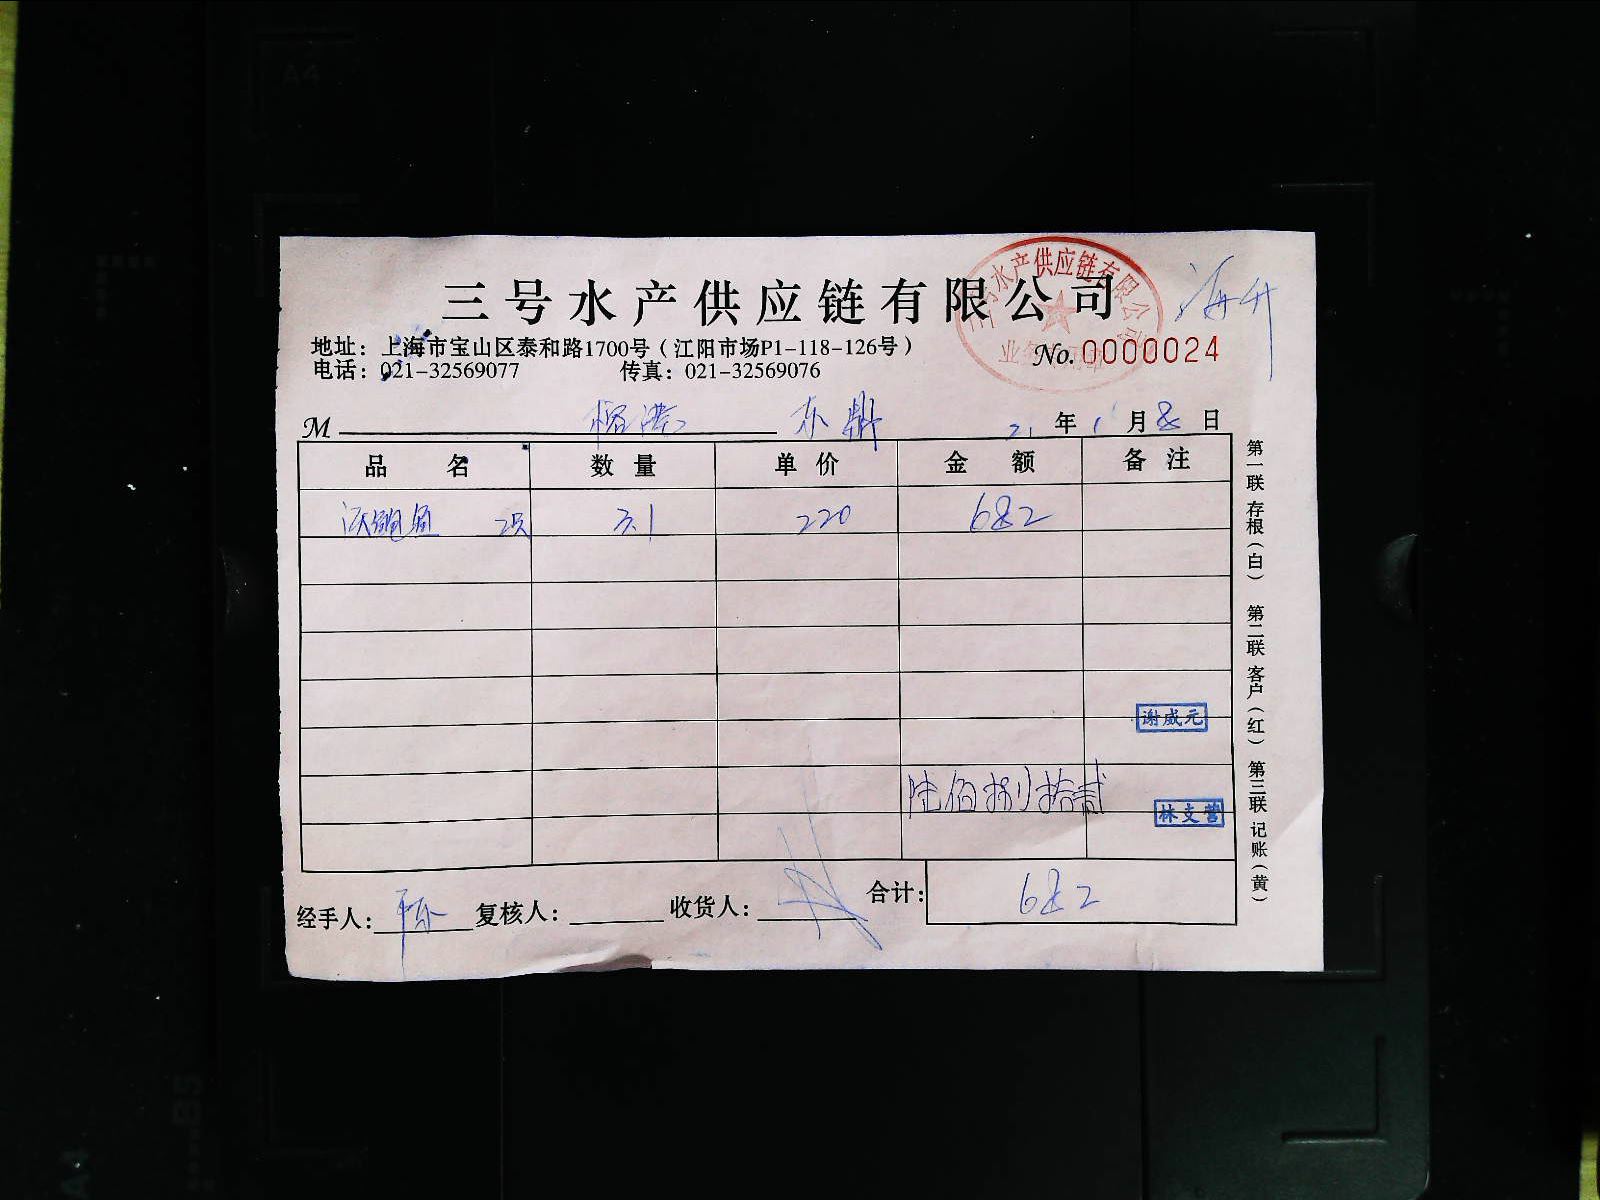 三号水产供应链有限公司
三号水产供应链有限公司
海升
地址：上海市宝山区泰和路1700号（江阳市场P1-118-126号）
No.0000024
电话：021-32569077 传真：021-32569076
M 榕港 东鼎 21年1月8日
品名 数量 单价 金额 备注
活鲍鱼 2只 3.1 220 682
谢威元
陆佰捌拾贰
林支营
合计：682
经手人： 复核人： 收货人：
第一联 存根（白） 第二联 客户（红） 第三联 记账（黄）
A4
B5
A4